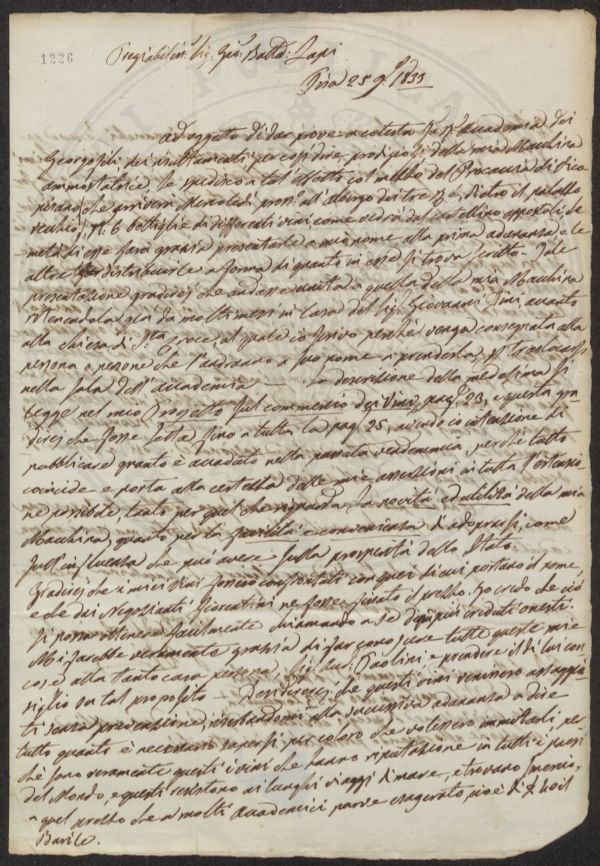 1226
Pregiabiliss: Sig. Gio: Batta: Lapi
Pisa 25 9. 1833
ad oggetto di dar prove a cotesta Accademia dei
Georgofili dei resultamenti per così dire, prodigiosi della mia Macchina
ammostatrice, Le spedisco a tal effetto col mezzo del Procaccia di Vico
pisano che arriverà Mercoledì pross. all'albergo dei tre Rè, dietro il palazzo
vecchio, N. 6 bottiglie di differenti vini, come vedrà dal cartellino appostoli, la
metà di esse farà grazia presentarle a mio nome alla prima adunanza e le
altre distribuirle a forma di quanto in esse si trova scritto. Tale
presentazione gradirei che andasse unita a quella della mia Macchina
ritenendola già da molti mesi in casa del Sig. Giovanni accanto
alla chiesa di S.ta Croce, al quale io scrivo perchè venga consegnata alla
persona o persone che l'andranno a suo nome a prenderla, p. traslocarsi
nella sala dell'accademia — La descrizione della medesima si
legge nel mio Progetto sul commercio dei Vini, pag. 23, e questa gra
direi che fosse letta fino a tutta la pag. 25, avendo io intenzione di
pubblicare quanto è accaduto nella passata vendemmia, perchè tutto
coincide e porta alla certezza delle mie asserzioni in tutta l'estensio
ne possibile, tanto per quel che riguarda la novità ed utilità della mia
Macchina, quanto per la facilità e convenienza di adoprarsi, come
sull'influenza che può avere sulla prosperità dello Stato.
Gradirei che i miei vini fossero confrontati con quei di cui portano il nome,
e che dai Negozianti fiorentini ne fosse fissato il prezzo. Io credo che ciò
si possa ottenere facilmente chiamando a se dei più creduti onesti.
Mi farebbe veramente grazia di far conoscere tutte queste mie
cose alla tanto cara persona, Sig. Paolini e prendere il di lui con
siglio su tal proposito Desidererei che questi vini venissero assaggia
ti senza prevenzione, riserbandomi alla successiva adunanza a dire
tutto quanto è necessario sapersi per coloro che volessero immitarli, per
chè sono veramente questi i vini che hanno riputazione in tutti i paesi
del Mondo, e questi resistono ai lunghi viaggi di mare, e trovano smercio
a quel prezzo che a molti Accademici parve esagerato, cioè di il
Barile.